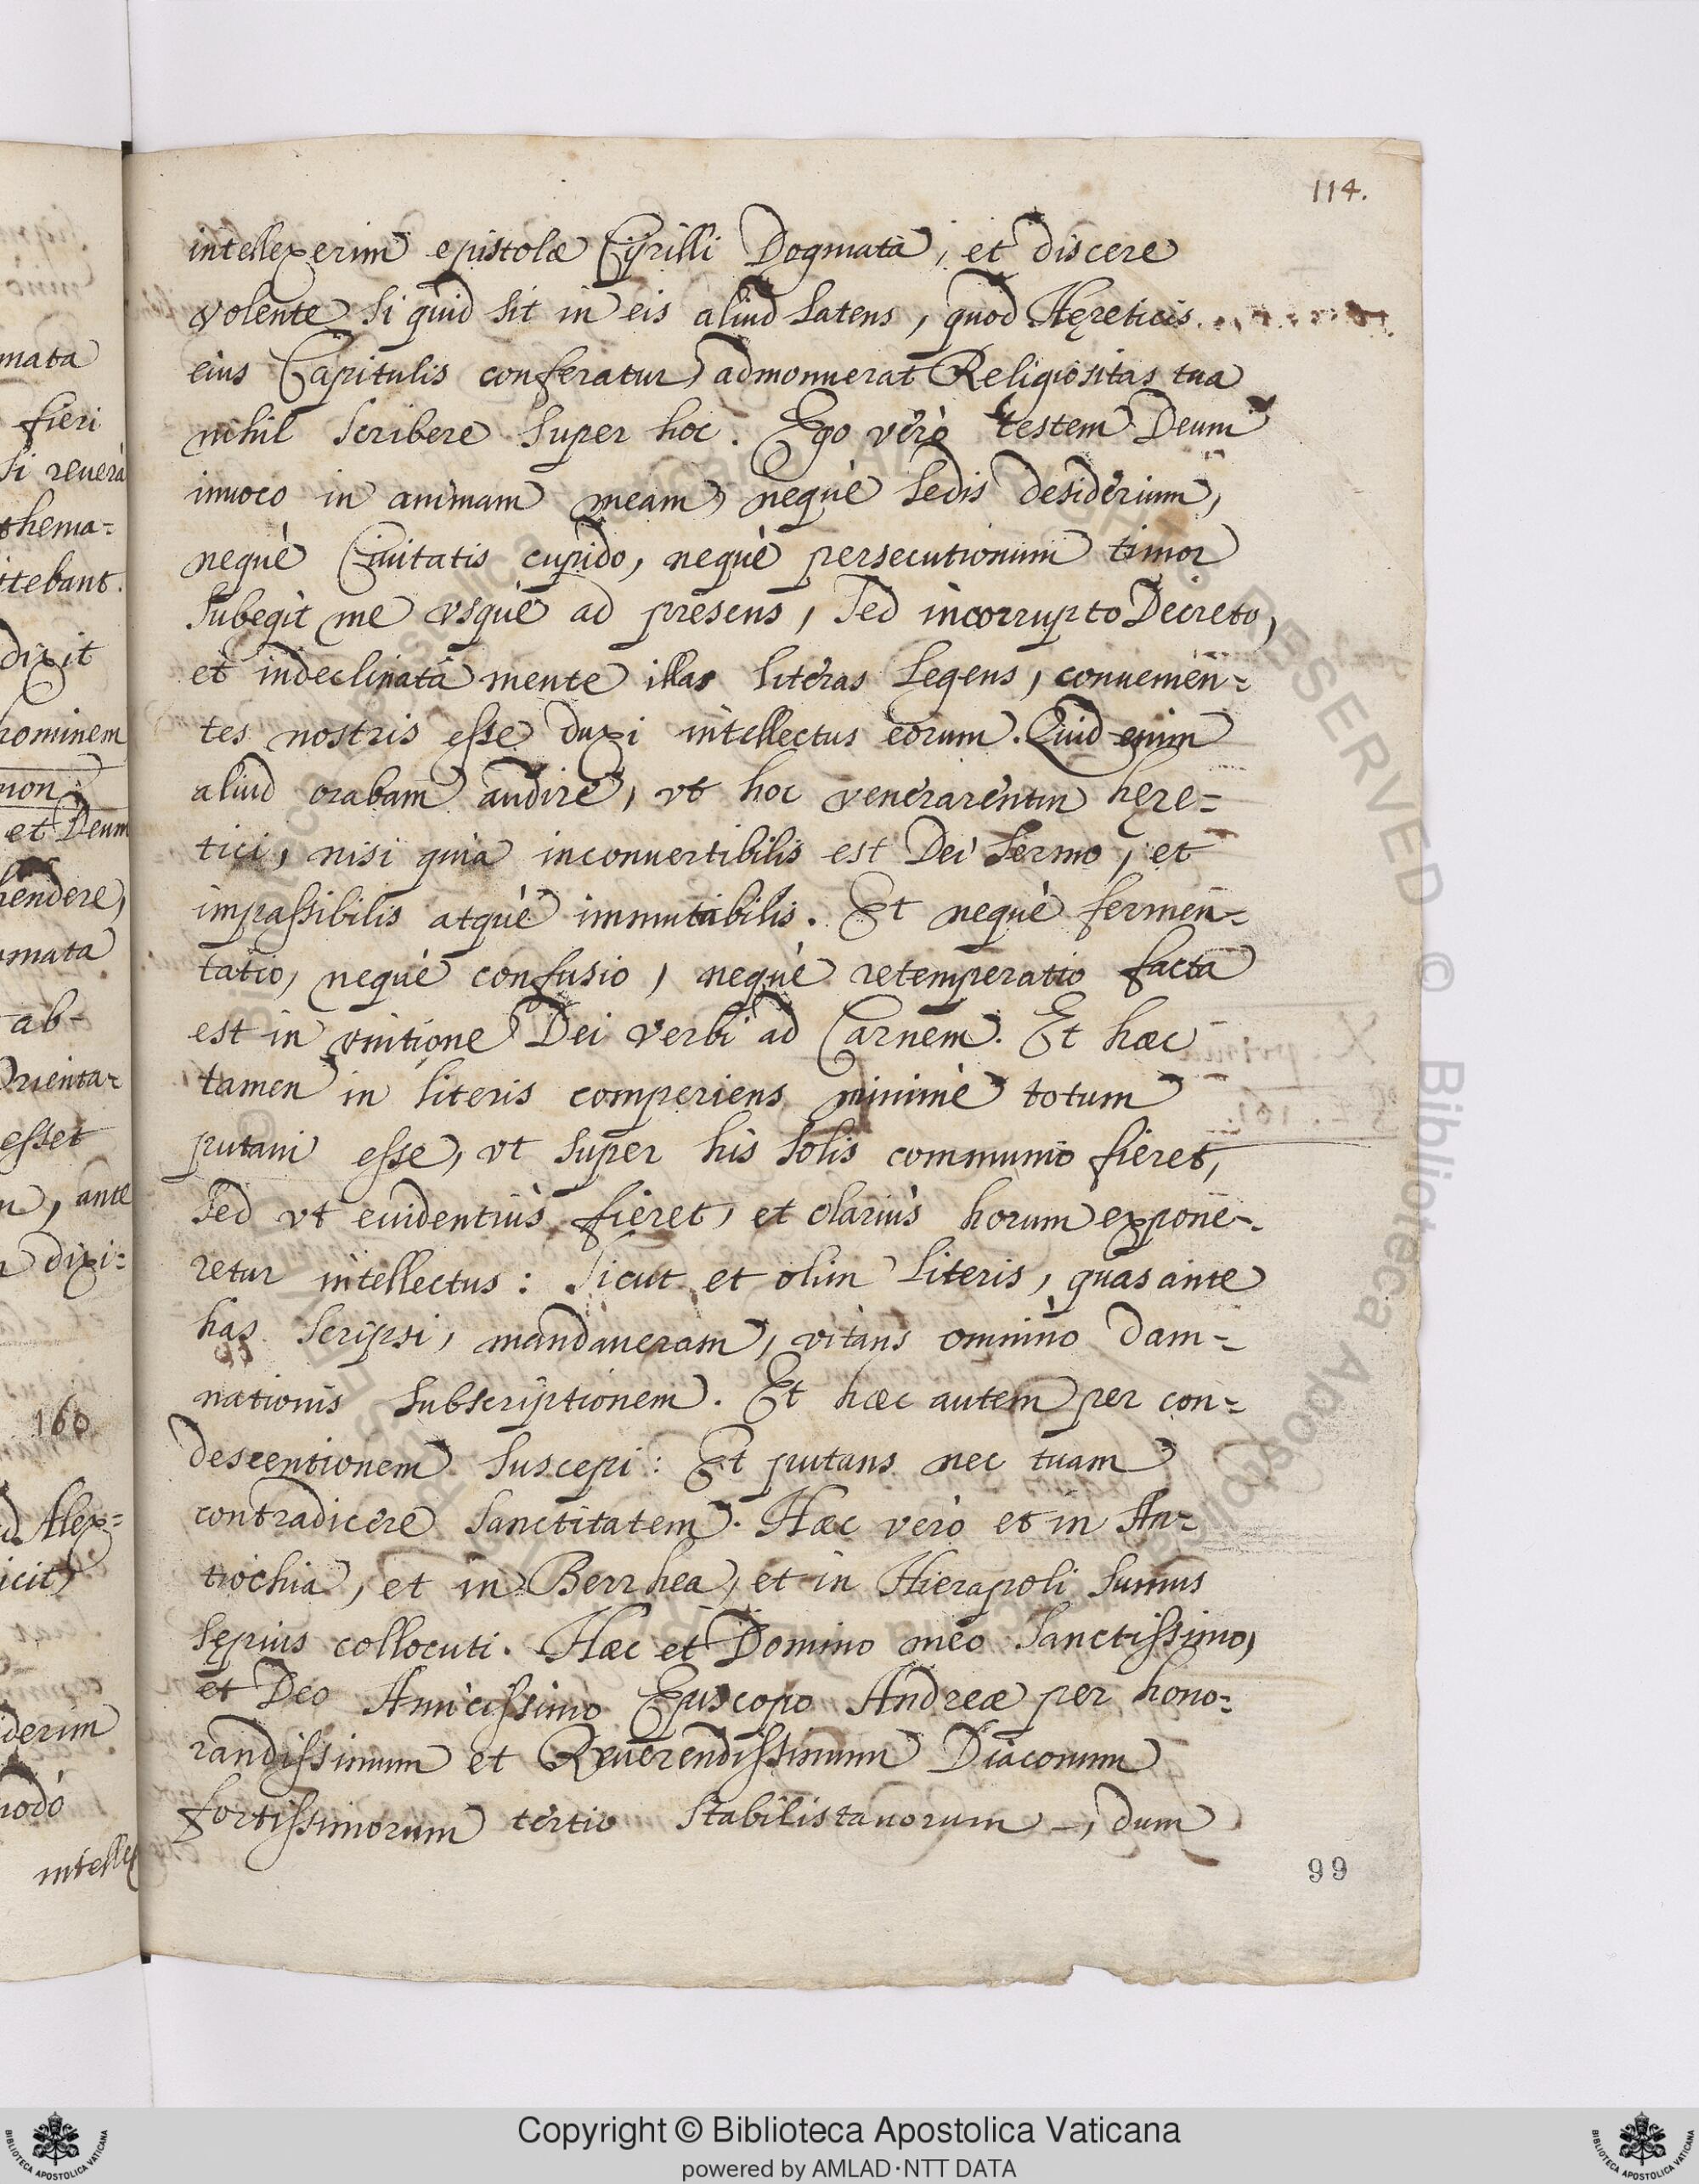 114.
intellexerim epistolæ Cÿrilli Dogmata, et discere
volente si quid sit in eis aliud latens, quod Hęreticis
eius Capitulis conferatur, admonuerat Religiositas tua
nihil scribere super hoc. Ego verò testem Deum
inuoco in animam meam, nequè sedis desiderium,
nequè Ciuitatis cupido, nequè persecutionum timor
subegit me vsquè ad presens, sed incorrupto Decreto,
et indeclinatâ mente illas literas legens, conuenien-
tes nostris esse duxi intellectus eorum. Quid enim
aliud orabam audire, vt hoc venerarentur hęre-
tici, nisi quia inconuertibilis est Dei sermo, et
impassibilis atquè immutabilis. Et nequè fermen-
tatio, nequè confusio, nequè retemperatio facta
est in vnitione Dei verbi ad Carnem. Et hæc
tamen in literis comperiens minimè totum
putaui esse, vt super his solis communio fieret,
sed vt euidentiùs fieret, et clariùs horum expone-
retur intellectus: sicut et olim literis, quas ante
has scripsi, mandaueram, vitans omninò dam-
nationis subscriptionem. Et hæc autem per con-
descentionem suscepi: Et putans nec tuam
contradicere sanctitatem. Hæc verò et in An-
tiochia, et in Berrhea, et in Hierapoli sumus
sępius collocuti. Hæc et Domino meo sanctissimo,
et Deo Amicissimo Episcopo Andreæ per hono-
randissimum et Reuerendissimum Diaconum
fortissimorum tertio stabilistanorum, dum
99
mata
fieri
si reuerà
thema-
ittebant.
dixit
hominem
non
et Deum
hendere,
mata
ab-
Orienta-
esset
, ante
dixi-
160
Alex-
icit
derim
modò
intellex
Copyright © Biblioteca Apostolica Vaticana
powered by AMLAD·NTT DATA